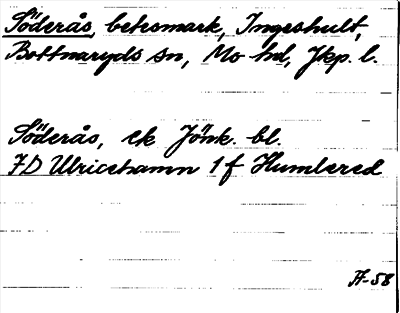 Söderås, betesmark, Ingeshult,
Bottnaryds sn, Mo hd, Jkp. l.
Söderås, ek Jönk. bl.
7D Ulricehamn 1 f Humlered
A-58